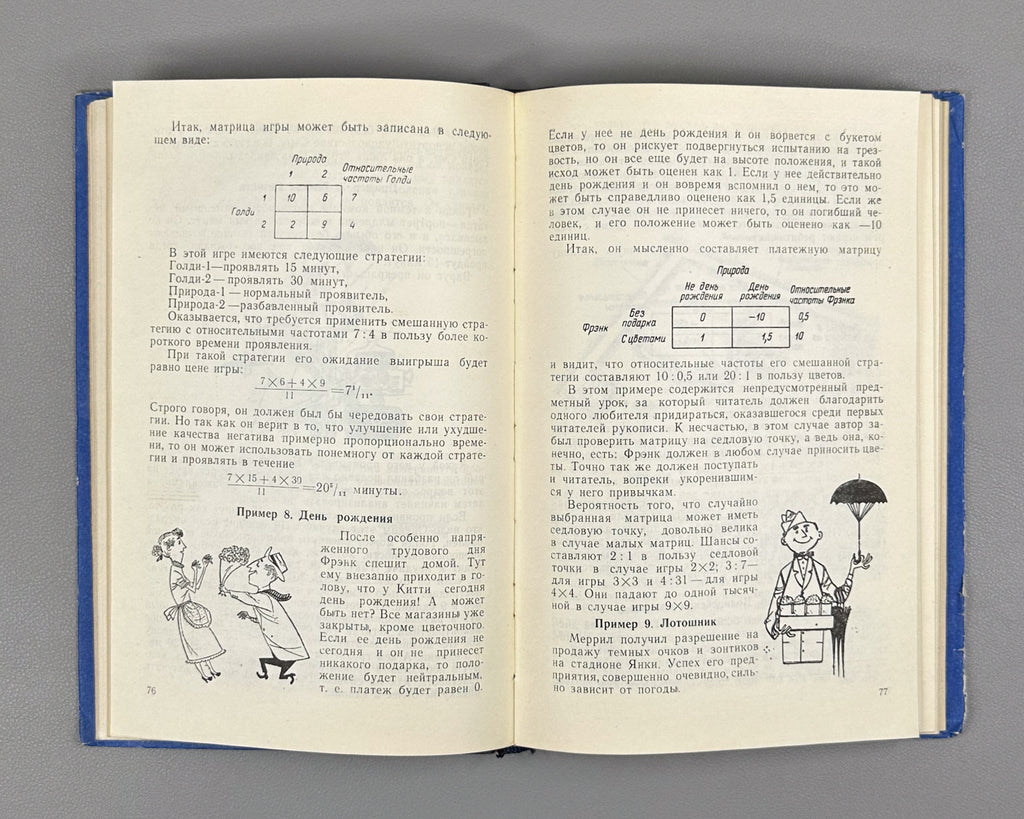 Итак, матрица игры может быть записана в следую-
щем виде:
Природа
1 2 Относительные
частоты Голди
1 10 6 7
Голди
2 2 9 4
В этой игре имеются следующие стратегии:
Голди-1—проявлять 15 минут,
Голди-2—проявлять 30 минут,
Природа-1—нормальный проявитель,
Природа-2—разбавленный проявитель.
Оказывается, что требуется применить смешанную стра-
тегию с относительными частотами 7:4 в пользу более ко-
роткого времени проявления.
При такой стратегии его ожидание выигрыша будет
равно цене игры:
7×6+4×9
11 =7¹/₁₁.
Строго говоря, он должен был бы чередовать свои страте-
гии. Но так как он верит в то, что улучшение или ухудше-
ние качества негатива примерно пропорционально време-
ни, то он может использовать понемногу от каждой страте-
гии и проявлять в течение
7×15+4×30
11 =20⁵/₁₁ минуты.
Пример 8. День рождения
После особенно напря-
женного трудового дня
Фрэнк спешит домой. Тут
ему внезапно приходит в го-
лову, что у Китти сегодня
день рождения! А может
быть нет? Все магазины уже
закрыты, кроме цветочного.
Если ее день рождения не
сегодня и он не принесет
никакого подарка, то поло-
жение будет нейтральным,
т. е. платеж будет равен 0.
76
Если у нее не день рождения и он ворвется с букетом
цветов, то он рискует подвергнуться испытанию на трез-
вость, но он все еще будет на высоте положения, и такой
исход может быть оценен как 1. Если у нее действительно
день рождения и он вовремя вспомнил о нем, то это мо-
жет быть справедливо оценено как 1,5 единицы. Если же
в этом случае он не принесет ничего, то он погибший че-
ловек, и его положение может быть оценено как —10
единиц.
Итак, он мысленно составляет платежную матрицу
Природа
Не день рождения День рождения Относительные частоты Фрэнка
Фрэнк Без подарка 0 —10 0,5
С цветами 1 1,5 10
и видит, что относительные частоты его смешанной стра-
тегии составляют 10:0,5 или 20:1 в пользу цветов.
В этом примере содержится непредусмотренный пред-
метный урок, за который читатель должен благодарить
одного любителя придираться, оказавшегося среди первых
читателей рукописи. К несчастью, в этом случае автор за-
был проверить матрицу на седловую точку, а ведь она, ко-
нечно, есть: Фрэнк должен в любом случае приносить цве-
ты. Точно так же должен поступать
и читатель, вопреки укоренившим-
ся у него привычкам.
Вероятность того, что случайно
выбранная матрица может иметь
седловую точку, довольно велика
в случае малых матриц. Шансы со-
ставляют 2:1 в пользу седловой
точки в случае игры 2×2; 3:7—
для игры 3×3 и 4:31—для игры
4×4. Они падают до одной тысяч-
ной в случае игры 9×9.
Пример 9. Лотошник
Меррил получил разрешение на
продажу темных очков и зонтиков
на стадионе Янки. Успех его пред-
приятия, совершенно очевидно, силь-
но зависит от погоды.
77